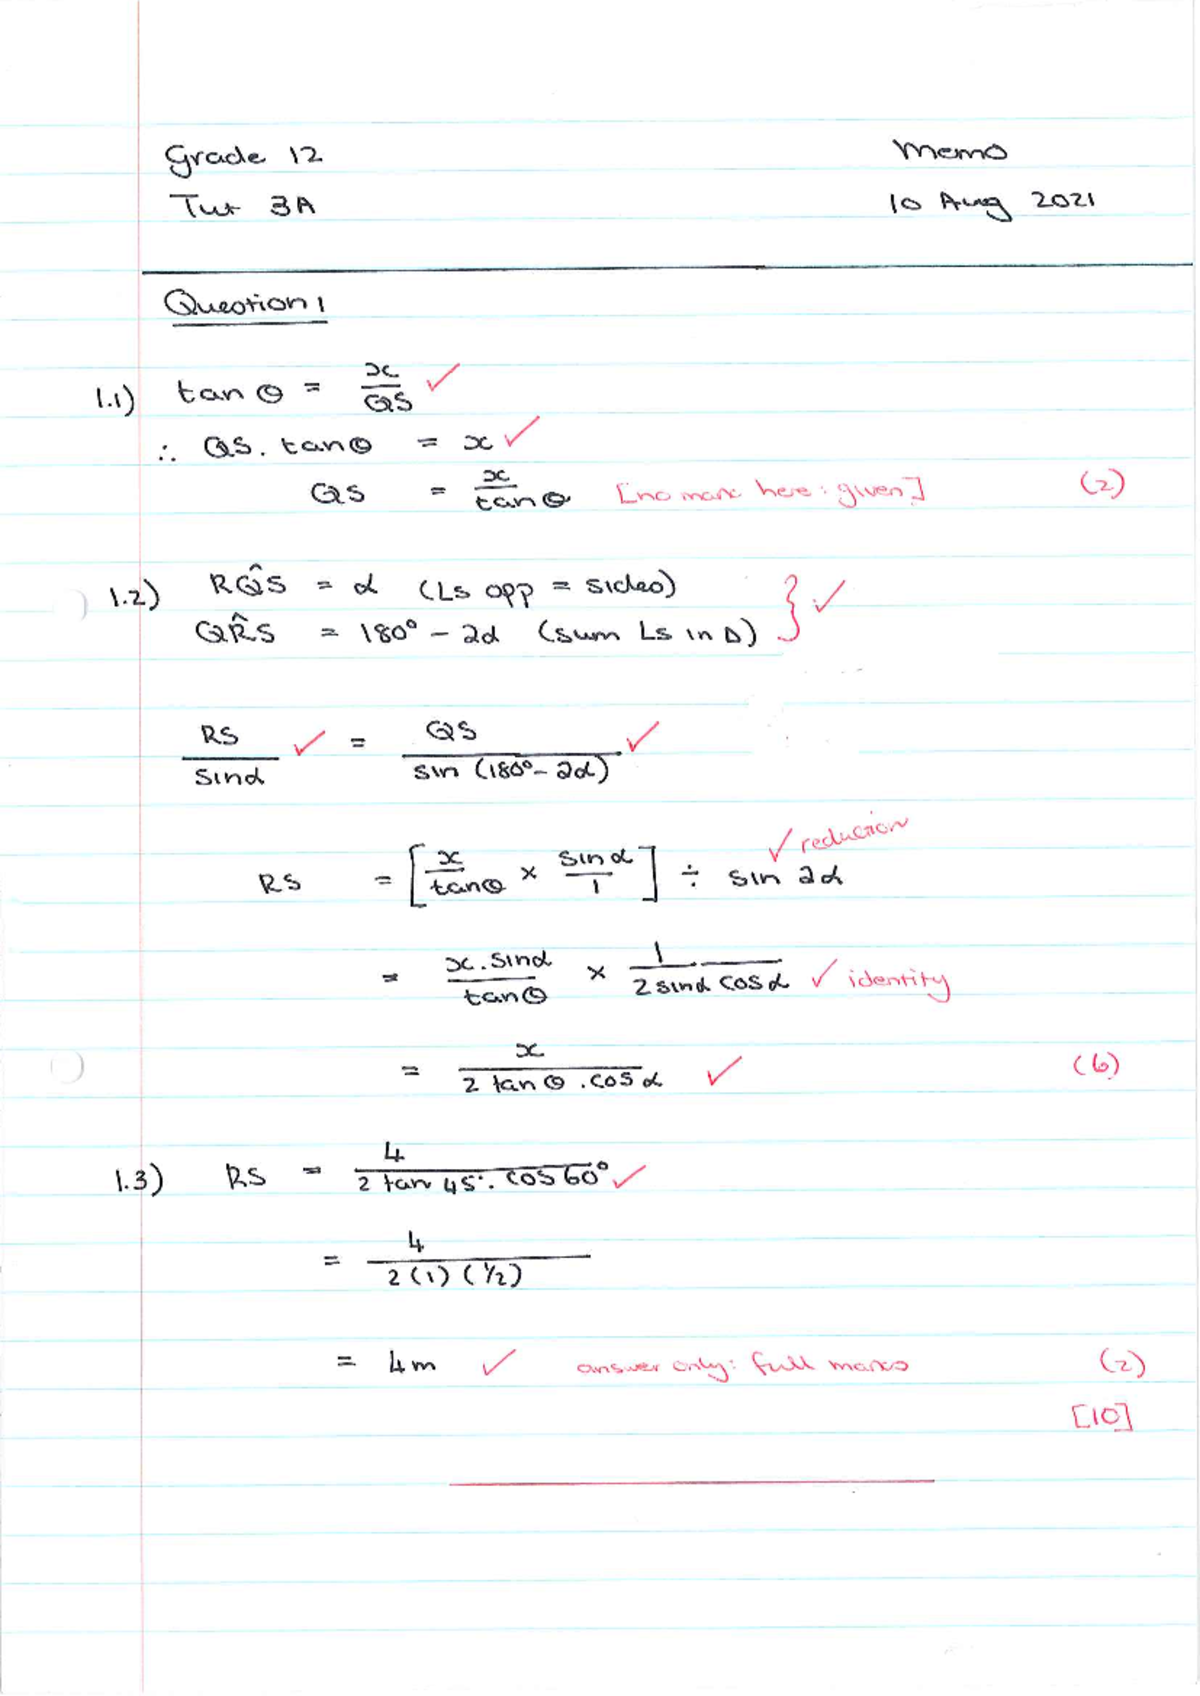 Grade 12 Memo
Tut 3A 10 Aug 2021
Question 1
1.1) tan θ = x/QS ✓
∴ QS. tan θ = x ✓
QS = x/tan θ [no mark here: given] (2)
1.2) RQ̂S = α (∠s opp = sides) } ✓
QR̂S = 180° - 2α (sum ∠s in Δ)
RS/sin α ✓ = QS/sin (180° - 2α) ✓
✓ reduction
RS = [x/tan θ × sin α/1] ÷ sin 2α
= x. sin α/tan θ × 1/2 sin α cos α ✓ identity
= x/2 tan θ . cos α ✓ (6)
1.3) RS = 4/2 tan 45°. cos 60° ✓
= 4/2(1)(1/2)
= 4m ✓ answer only: full marks (2)
[10]